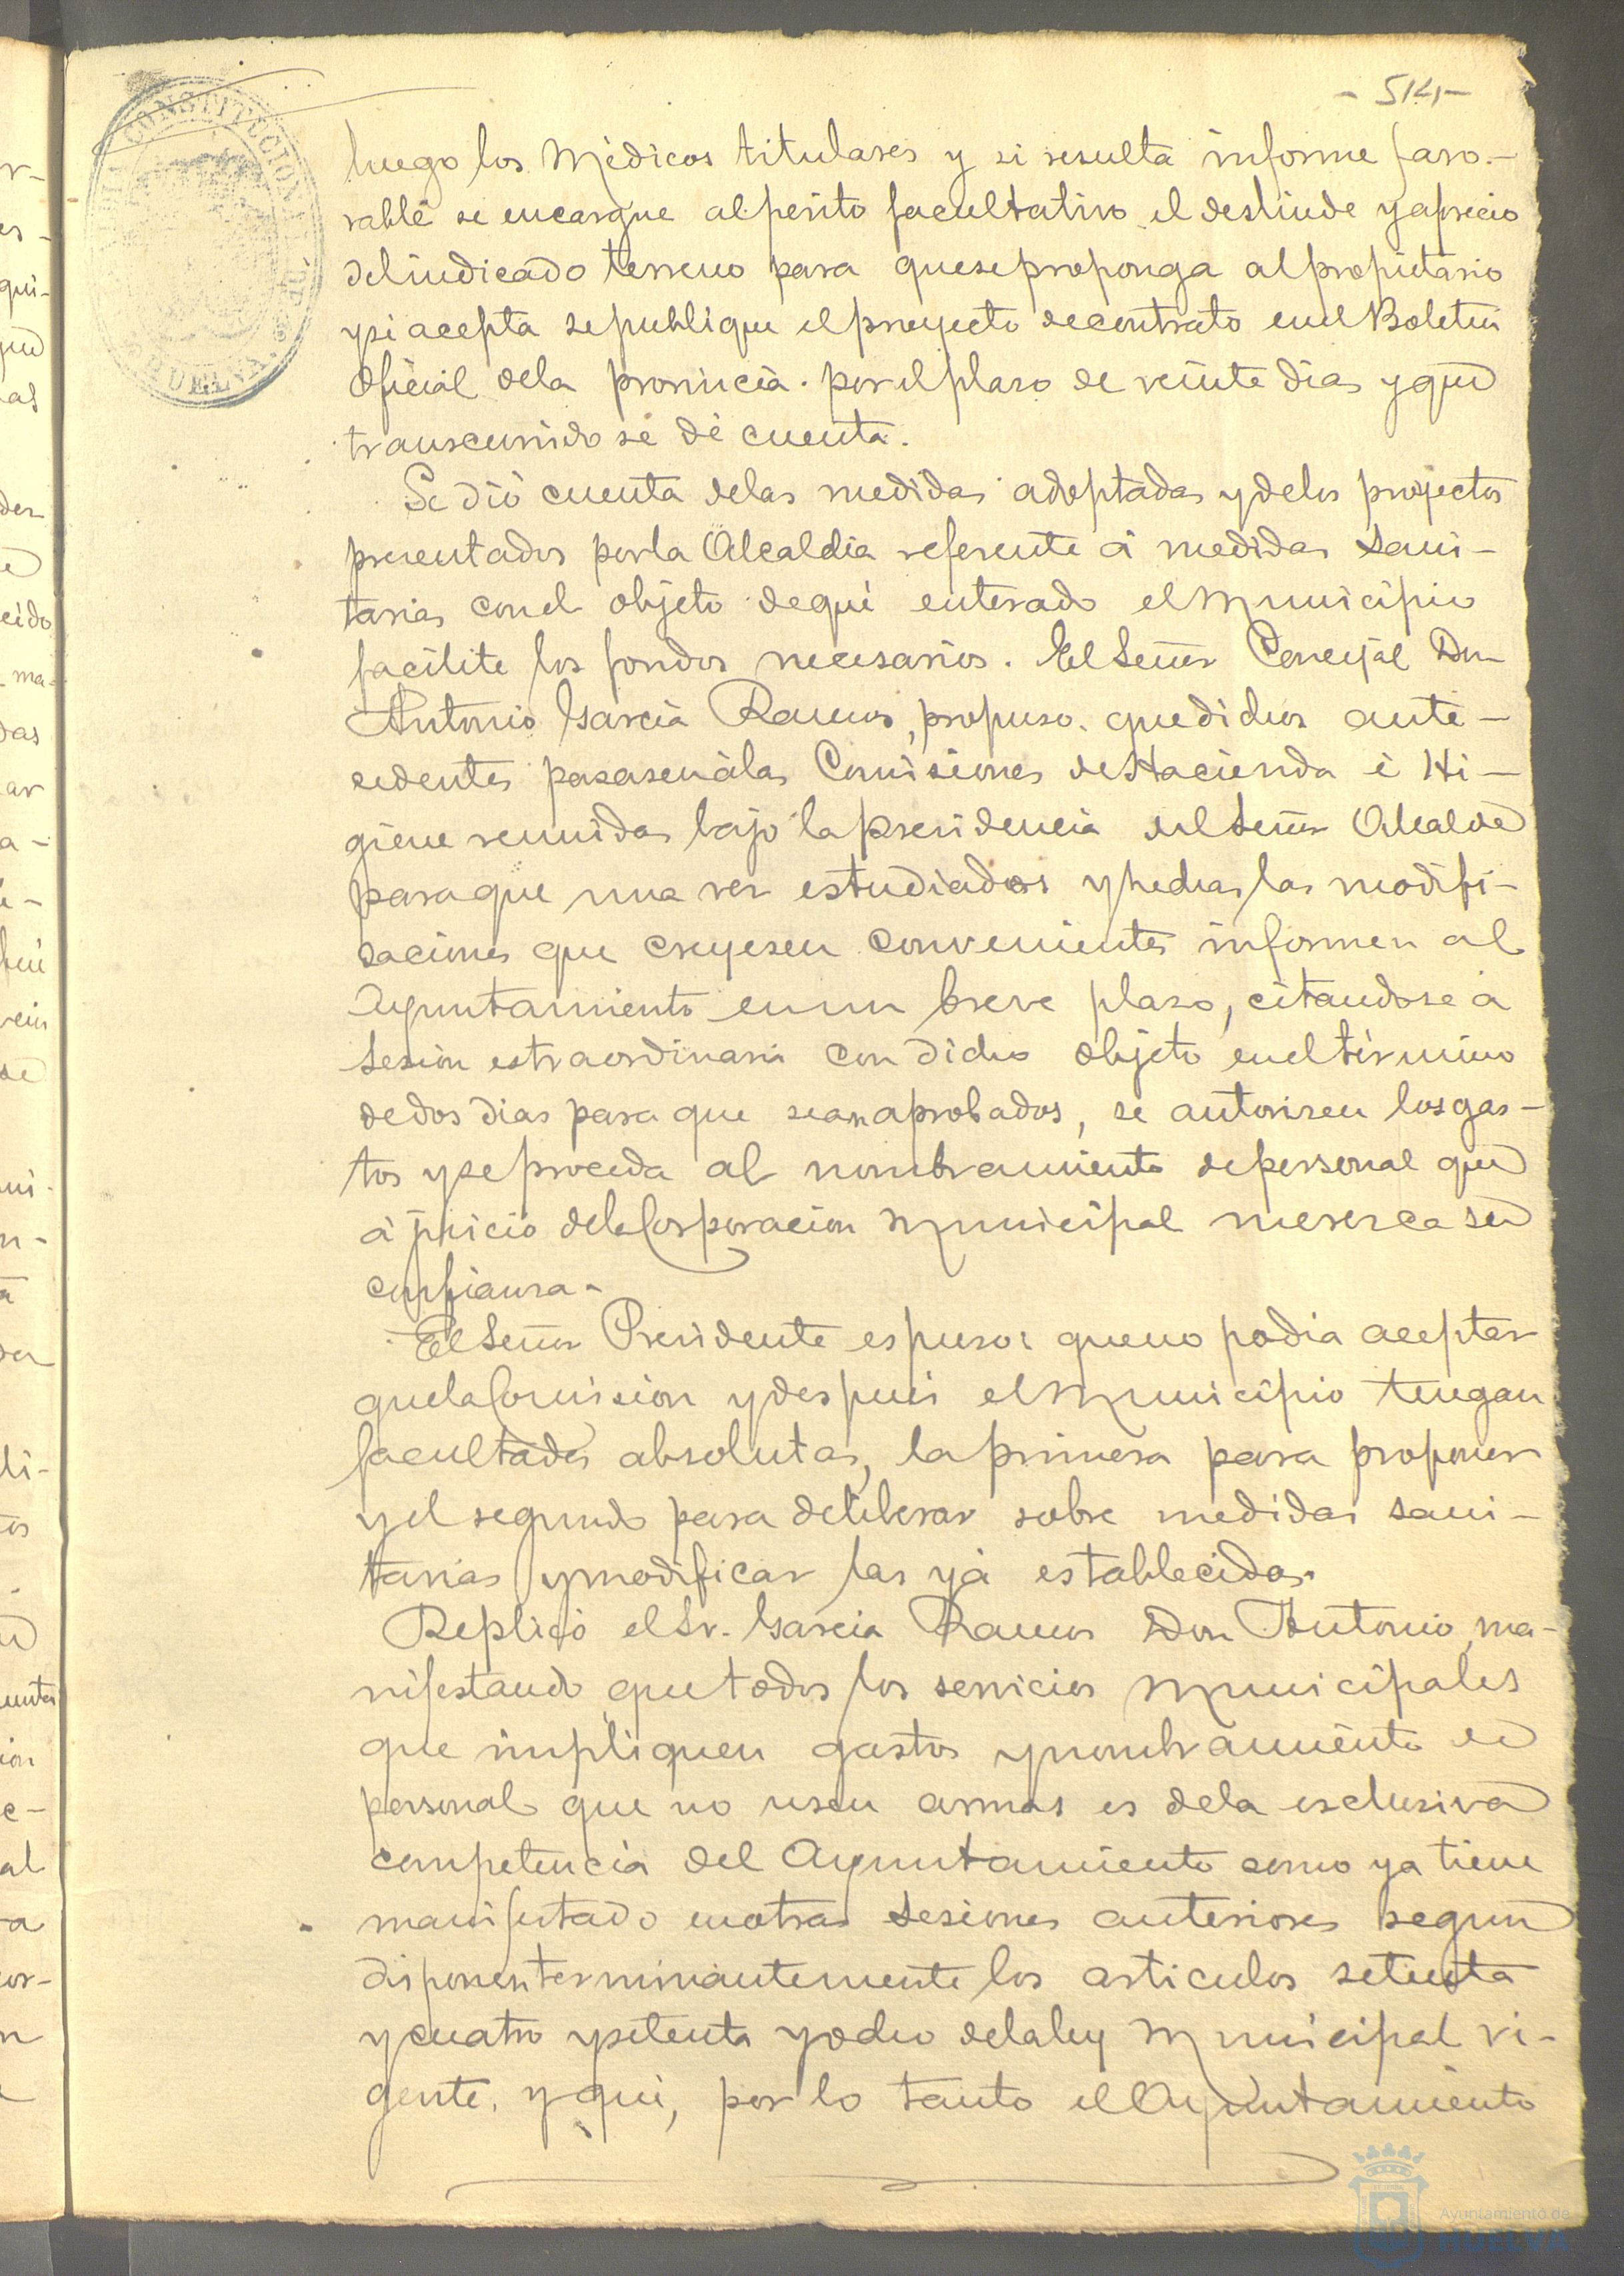 - 514 -
luego los Médicos titulares y si resulta informe favo-
rable se encargue al perito facultativo el deslinde y aprecio
del indicado terreno para que se proponga al propietario
y si acepta se publique el proyecto de contrato en el Boletin
Oficial de la provincia por el plazo de veinte dias y que
transcurrido se dé cuenta.
Se dió cuenta de las medidas adoptadas y de los proyectos
presentados por la Alcaldia referente á medidas sani-
tarias con el objeto de que enterado el Municipio
facilite los fondos necesarios. El Señor Concejal Don
Antonio Garcia Ramos, propuso que dichos ante-
cedentes pasasen á las Comisiones de Hacienda é Hi-
giene reunidas bajo la presidencia del Señor Alcalde
para que una vez estudiados y hechas las modifi-
caciones que creyesen convenientes informen al
Ayuntamiento en un breve plazo, citandose á
sesion estraordinaria con dicho objeto en el término
de dos dias para que sean aprobados, se autoricen los gas-
tos y se proceda al nombramiento de personal que
á juicio de la Corporacion Municipal merezca su
confianza.
El Señor Presidente espuso: que no podia aceptar
que la Comision y despues el Municipio tengan
facultades absolutas, la primera para proponer
y el segundo para deliberar sobre medidas sani-
tarias y modificar las yá establecidas.
Replicó el Sr. Garcia Ramos Don Antonio, ma-
nifestando que todos los servicios Municipales
que impliquen gastos y nombramiento de
personal que no usen armas es de la esclusiva
competencia del Ayuntamiento como ya tiene
manifestado en otras sesiones anteriores segun
disponen terminantemente los articulos setenta
y cuatro y setenta y ocho de la ley Municipal vi-
gente, y que, por lo tanto el Ayuntamiento
CONSTITUCIONAL DE HUELVA
Ayuntamiento de
HUELVA